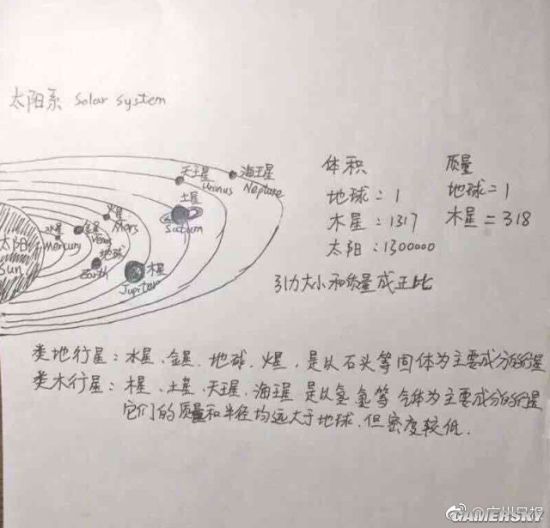 太阳系 Solar System
天王星
Uranus
海王星
Neptune
土星
Saturn
火星
Mars
水星
Mercury
金星
Venus
地球
Earth
木星
Jupiter
太阳
Sun
体积
地球=1
木星:1317
太阳:1300000
质量
地球=1
木星=318
引力大小和质量成正比
类地行星:水星、金星、地球、火星,是以石头等固体为主要成分的行星
类木行星:木星、土星、天王星、海王星 是以氢、氦等气体为主要成分的行星
它们的质量和半径均远大于地球,但密度较低.
@广州日报
GAMERSKY